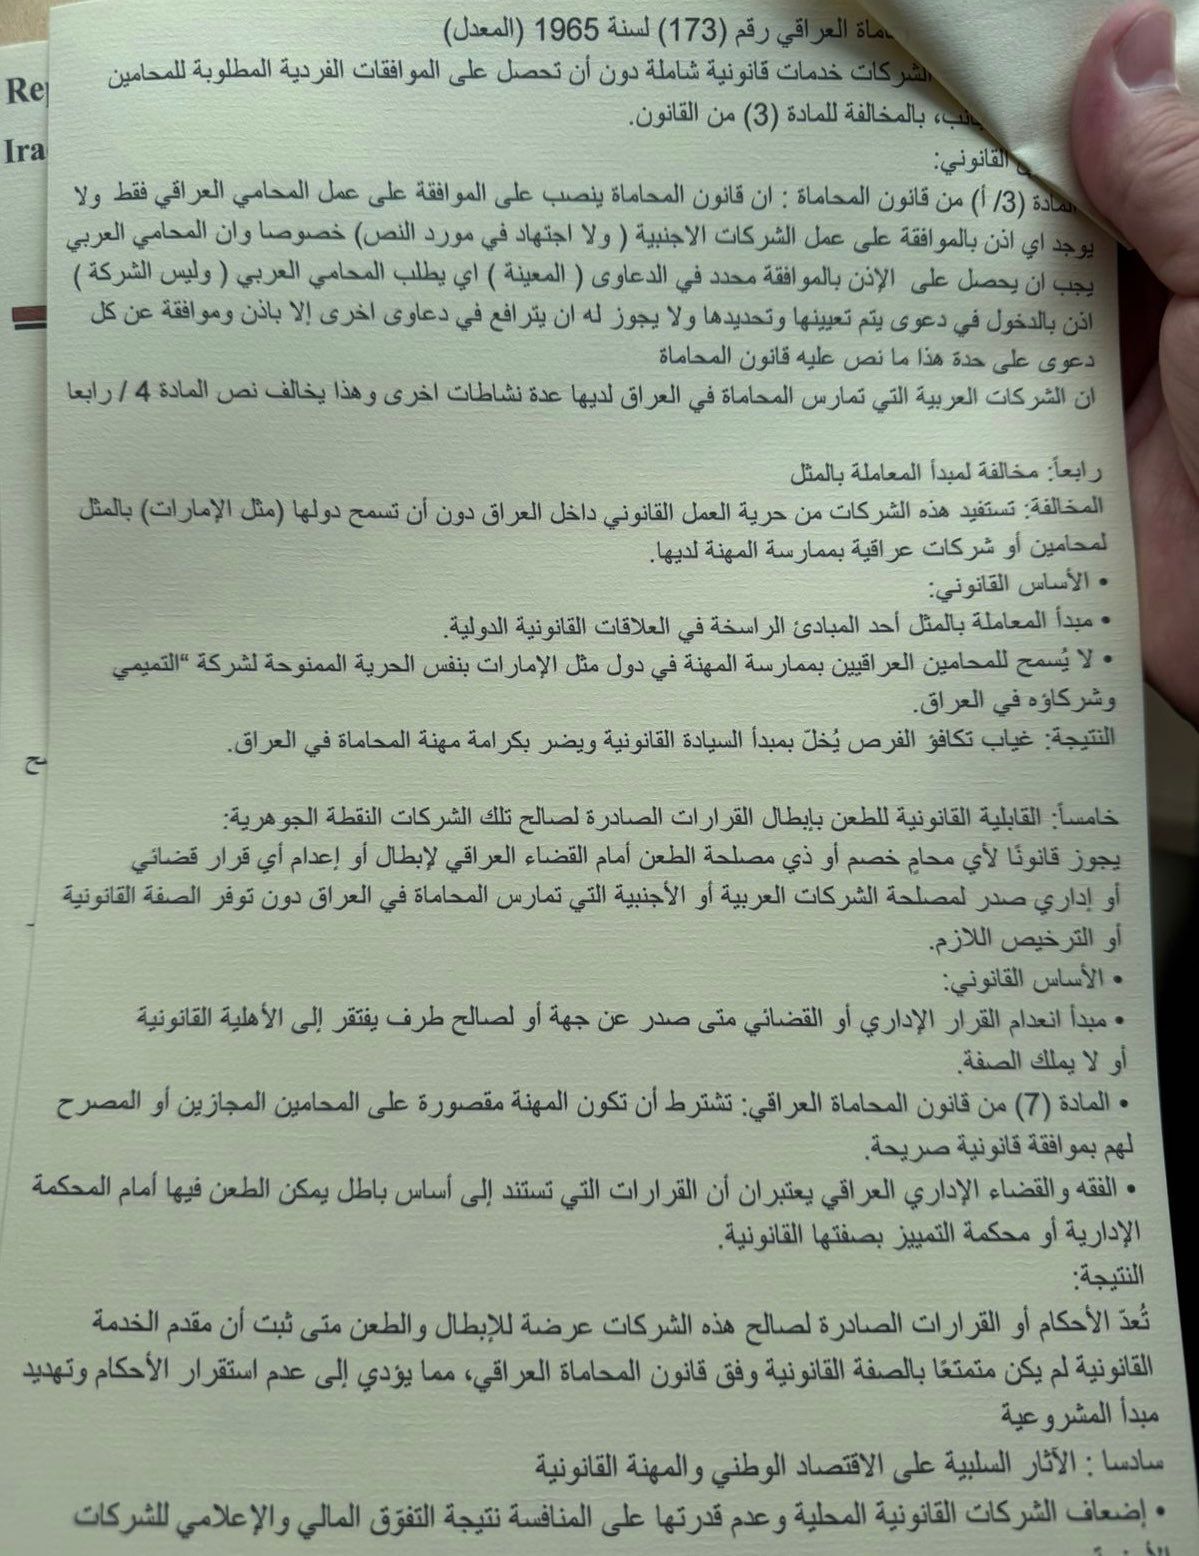 العراقي رقم (173) لسنة 1965 (المعدل)
الشركات خدمات قانونية شاملة دون أن تحصل على الموافقات الفردية المطلوبة للمحامين
بالمخالفة للمادة (3) من القانون.
القانوني:
المادة (3/ أ) من قانون المحاماة : ان قانون المحاماة ينصب على الموافقة على عمل المحامي العراقي فقط ولا
يوجد اي اذن بالموافقة على عمل الشركات الاجنبية ( ولا اجتهاد في مورد النص) خصوصا وان المحامي العربي
يجب ان يحصل على الإذن بالموافقة محدد في الدعاوى ( المعينة ) اي يطلب المحامي العربي ( وليس الشركة )
اذن بالدخول في دعوى يتم تعيينها وتحديدها ولا يجوز له ان يترافع في دعاوى اخرى إلا باذن وموافقة عن كل
دعوى على حدة هذا ما نص عليه قانون المحاماة
ان الشركات العربية التي تمارس المحاماة في العراق لديها عدة نشاطات اخرى وهذا يخالف نص المادة 4 / رابعا
رابعاً: مخالفة لمبدأ المعاملة بالمثل
المخالفة: تستفيد هذه الشركات من حرية العمل القانوني داخل العراق دون أن تسمح دولها (مثل الإمارات) بالمثل
لمحامين أو شركات عراقية بممارسة المهنة لديها.
• الأساس القانوني:
• مبدأ المعاملة بالمثل أحد المبادئ الراسخة في العلاقات القانونية الدولية.
• لا يُسمح للمحامين العراقيين بممارسة المهنة في دول مثل الإمارات بنفس الحرية الممنوحة لشركة “التميمي
وشركاؤه في العراق.
النتيجة: غياب تكافؤ الفرص يُخلّ بمبدأ السيادة القانونية ويضر بكرامة مهنة المحاماة في العراق.
خامساً: القابلية القانونية للطعن بإبطال القرارات الصادرة لصالح تلك الشركات النقطة الجوهرية:
يجوز قانونًا لأي محامٍ خصم أو ذي مصلحة الطعن أمام القضاء العراقي لإبطال أو إعدام أي قرار قضائي
أو إداري صدر لمصلحة الشركات العربية أو الأجنبية التي تمارس المحاماة في العراق دون توفر الصفة القانونية
أو الترخيص اللازم.
• الأساس القانوني:
• مبدأ انعدام القرار الإداري أو القضائي متى صدر عن جهة أو لصالح طرف يفتقر إلى الأهلية القانونية
أو لا يملك الصفة.
• المادة (7) من قانون المحاماة العراقي: تشترط أن تكون المهنة مقصورة على المحامين المجازين أو المصرح
لهم بموافقة قانونية صريحة.
• الفقه والقضاء الإداري العراقي يعتبران أن القرارات التي تستند إلى أساس باطل يمكن الطعن فيها أمام المحكمة
الإدارية أو محكمة التمييز بصفتها القانونية.
النتيجة:
تُعدّ الأحكام أو القرارات الصادرة لصالح هذه الشركات عرضة للإبطال والطعن متى ثبت أن مقدم الخدمة
القانونية لم يكن متمتعًا بالصفة القانونية وفق قانون المحاماة العراقي، مما يؤدي إلى عدم استقرار الأحكام وتهديد
مبدأ المشروعية
سادسا : الآثار السلبية على الاقتصاد الوطني والمهنة القانونية
• إضعاف الشركات القانونية المحلية وعدم قدرتها على المنافسة نتيجة التفوّق المالي والإعلامي للشركات